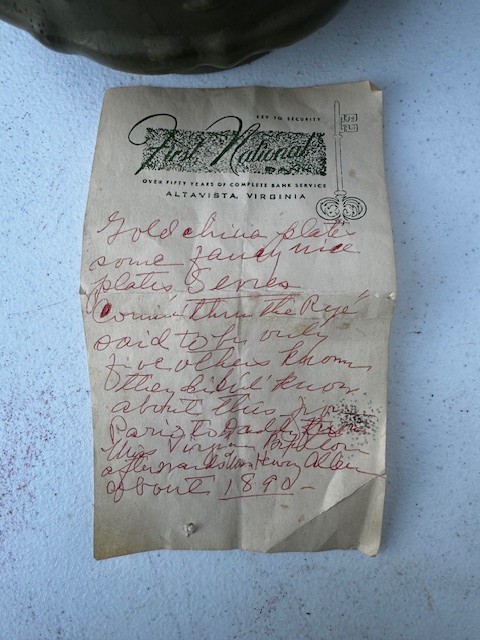 KEY TO SECURITY
First National
OVER FIFTY YEARS OF COMPLETE BANK SERVICE
ALTAVISTA, VIRGINIA
Gold china plates
some fancy nice
plates Sevres
"Comin' thru the Rye"
said to be only
five others known
They didn't know
about this
Paris to Dadd
Miss Virginia
afterwards Henry
about 1890-